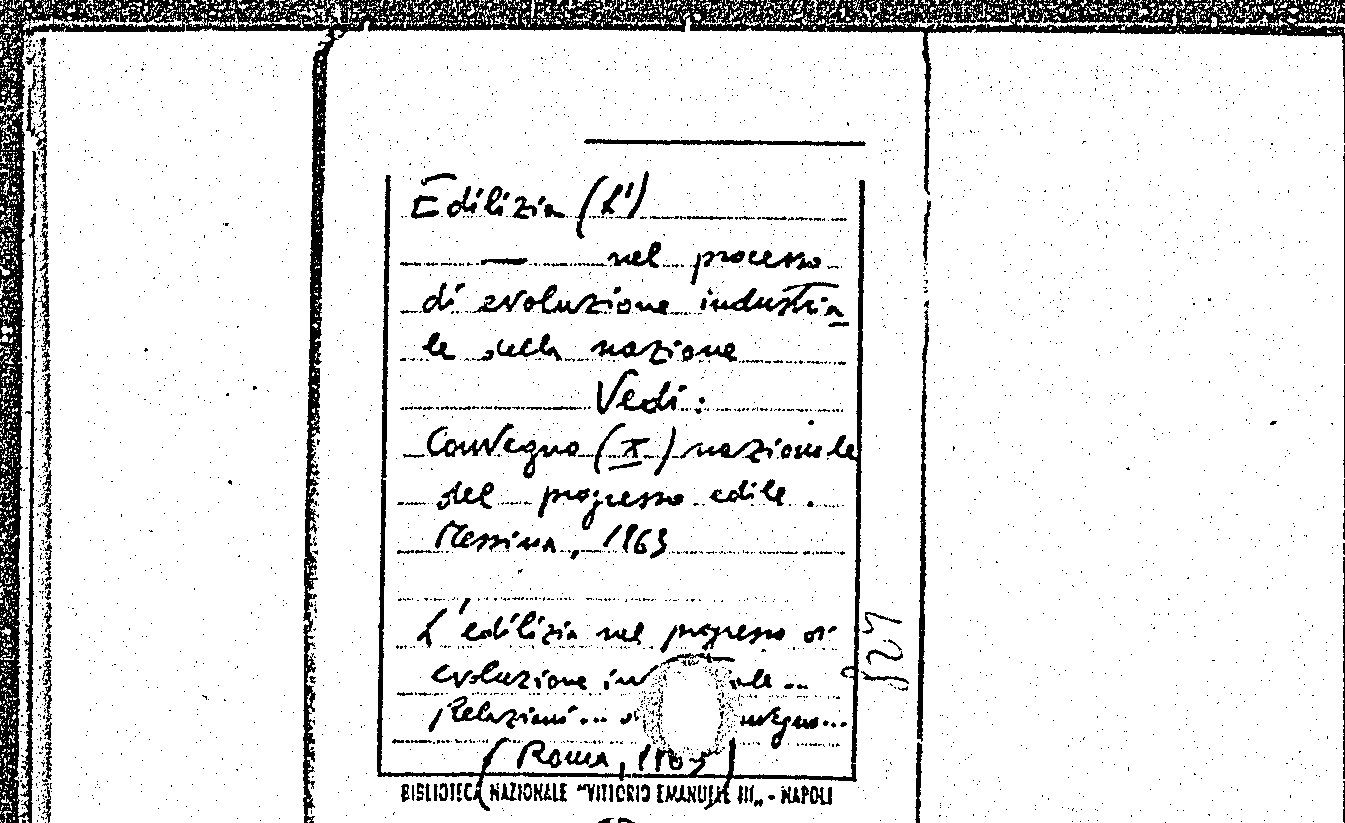 Edilizia (L')
— nel processo
di evoluzione industria
le della nazione
Vedi:
Convegno (X) nazionale
del progresso edile.
Messina, 1963
L'edilizia nel progresso di
evoluzione in ale...
Relazioni... nvegno...
(Roma, 1965)
BIBLIOTECA NAZIONALE "VITTORIO EMANUELE III„ - NAPOLI